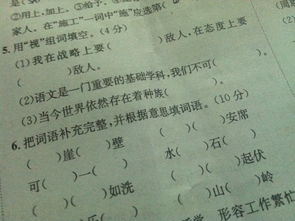 是( ②用上,加上。③给予。④
家人。在“施工”一词中“施”应选第(
5. 用“视”组词填空。(4分)
(1)我在战略上要( )敌人,在态度上要
( )敌人。
(2)语文是一门重要的基础学科,我们不可( )。
(3)当今世界依然存在着种族( )。
6. 把词语补充完整,并根据意思填词语。(10分)
( )崖( )壁 ( )安席
可( )一( ) 水( )石( )
( )如洗 ( )起伏
( )山( )岭
形容工作繁忙